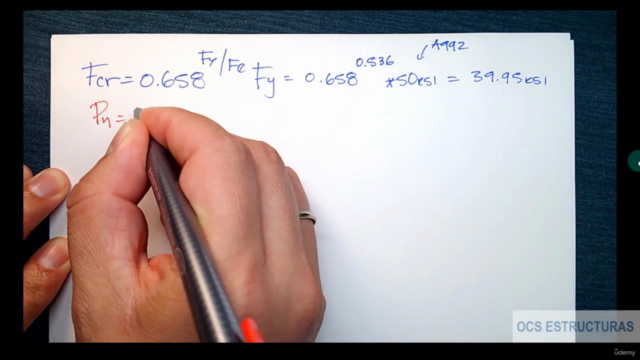 Fcr = 0.658^Fy/Fe Fy = 0.658^0.536 *50ksi = 39.95ksi
A992
Pn =
OCS ESTRUCTURAS
ûdemy